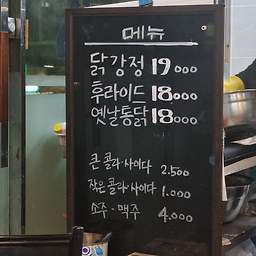 메뉴
닭강정 19000
후라이드 18000
옛날통닭 18000
큰 콜라·사이다 2.500
작은 콜라·사이다 1.000
소주·맥주 4.000